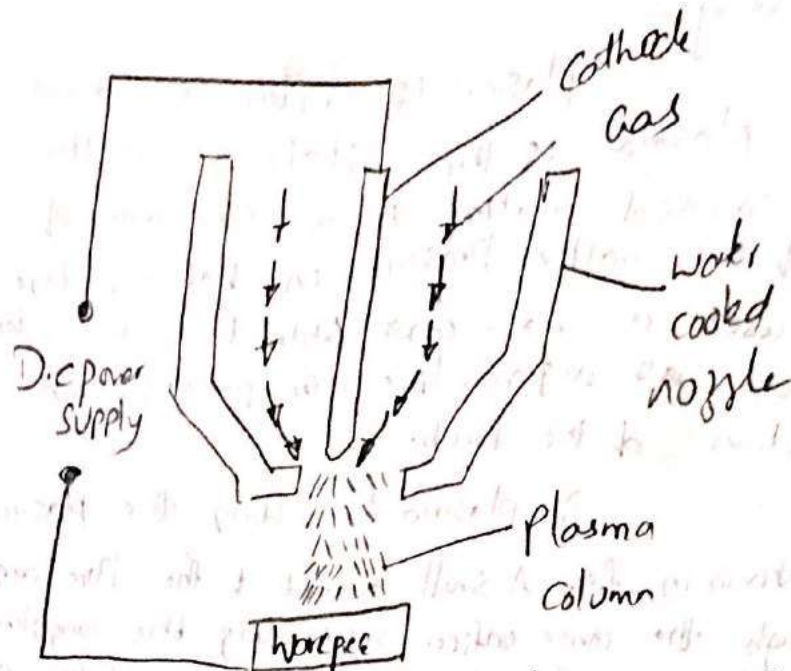 Cathode
Gas
water
cooled
nozzle
D.c power
supply
plasma
column
workpee